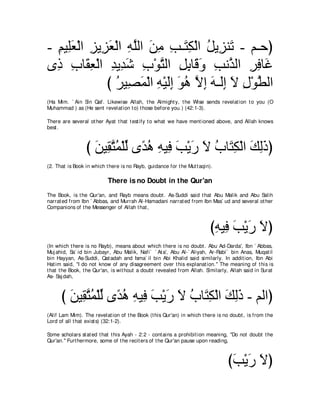 - حـم - تَنزِيلُ الْكِتَـبِ مِنَ اللَّهِ الْعَزِيزِ الْعَلِيمِ
غَافِرِ الذَّنبِ وَقَابِلِ التَّوْبِ شَدِيدِ الْعِقَابِ ذِى
الطَّوْلِ لاَ إِلَـهَ إِلاَّ هُوَ إِلَيْهِ الْمَصِيرُ )
(Ha Mim. `Ain Sin Qaf. Likewise Allah, the Almighty, the Wise sends revelation to you (O
Muhammad ) as (He sent revelation to) those before you.) (42:1-3).
There are several other Ayat that testify to what we have mentioned above, and Allah knows
best.
(ذَلِكَ الْكِتَابُ لاَ رَيْبَ فِيهِ هُدًى لِّلْمُتَّقِينَ )
(2. That is Book in which there is no Rayb, guidance for the Muttaqin).
There is no Doubt in the Qur'an
The Book, is the Qur'an, and Rayb means doubt. As-Suddi said that Abu Malik and Abu Salih
narrated from Ibn `Abbas, and Murrah Al-Hamadani narrated from Ibn Mas`ud and several other
Companions of the Messenger of Allah that,
(لاَ رَيْبَ فِيهِ)
(In which there is no Rayb), means about which there is no doubt. Abu Ad-Darda', Ibn `Abbas,
Mujahid, Sa`id bin Jubayr, Abu Malik, Nafi` `Ata', Abu Al-`Aliyah, Ar-Rabi` bin Anas, Muqatil
bin Hayyan, As-Suddi, Qatadah and Isma`il bin Abi Khalid said similarly. In addition, Ibn Abi
Hatim said, "I do not know of any disagreement over this explanation." The meaning of this is
that the Book, the Qur'an, is without a doubt revealed from Allah. Similarly, Allah said in Surat
As-Sajdah,
(الم - ذَلِكَ الْكِتَابُ لاَ رَيْبَ فِيهِ هُدًى لِّلْمُتَّقِينَ )
(Alif Lam Mim). The revelation of the Book (this Qur'an) in which there is no doubt, is from the
Lord of all that exists) (32:1-2).
Some scholars stated that this Ayah - 2:2 - contains a prohibition meaning, "Do not doubt the
Qur'an." Furthermore, some of the reciters of the Qur'an pause upon reading,
(لاَ رَيْبَ)